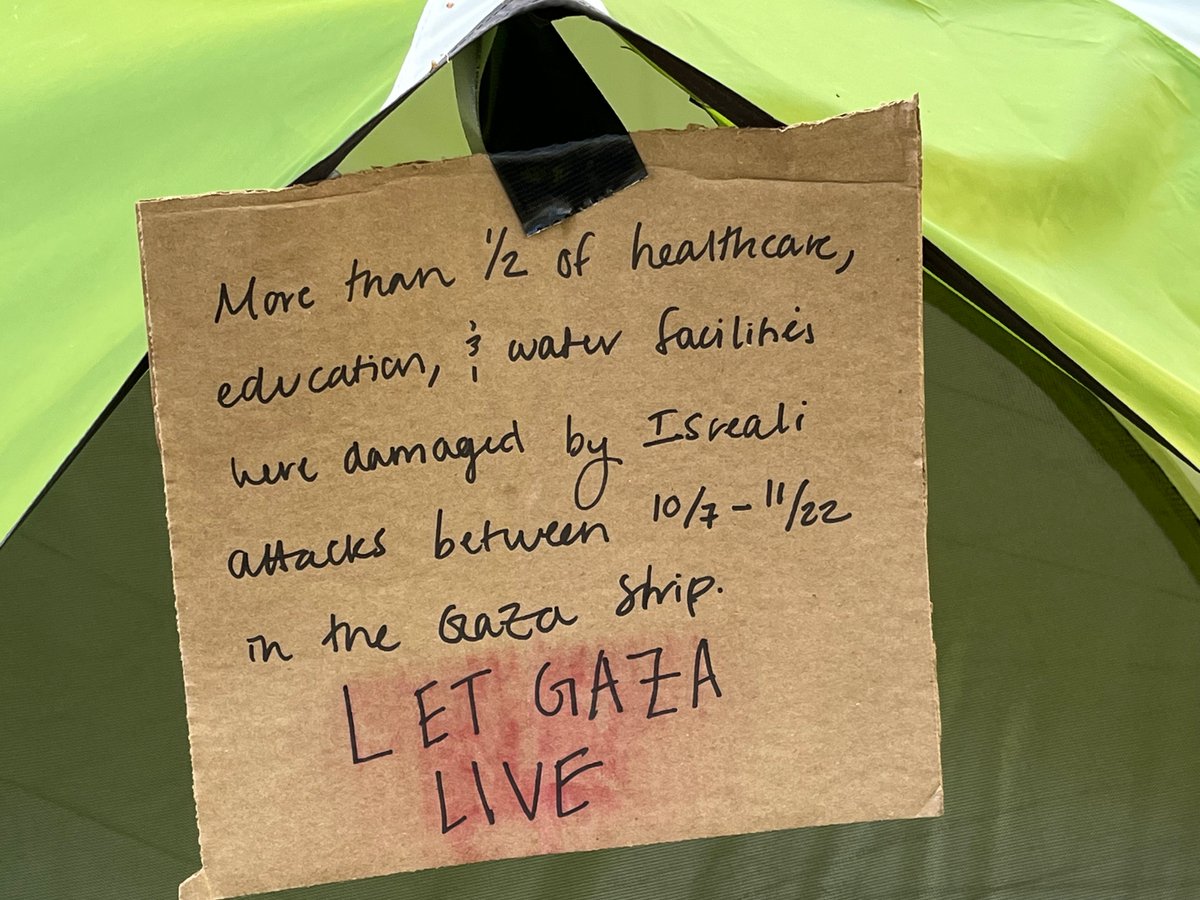 More than 1/2 of healthcare,
education, & water facilities
were damaged by Isreali
attacks between 10/7-11/22
in the Gaza Strip.
LET GAZA
LIVE